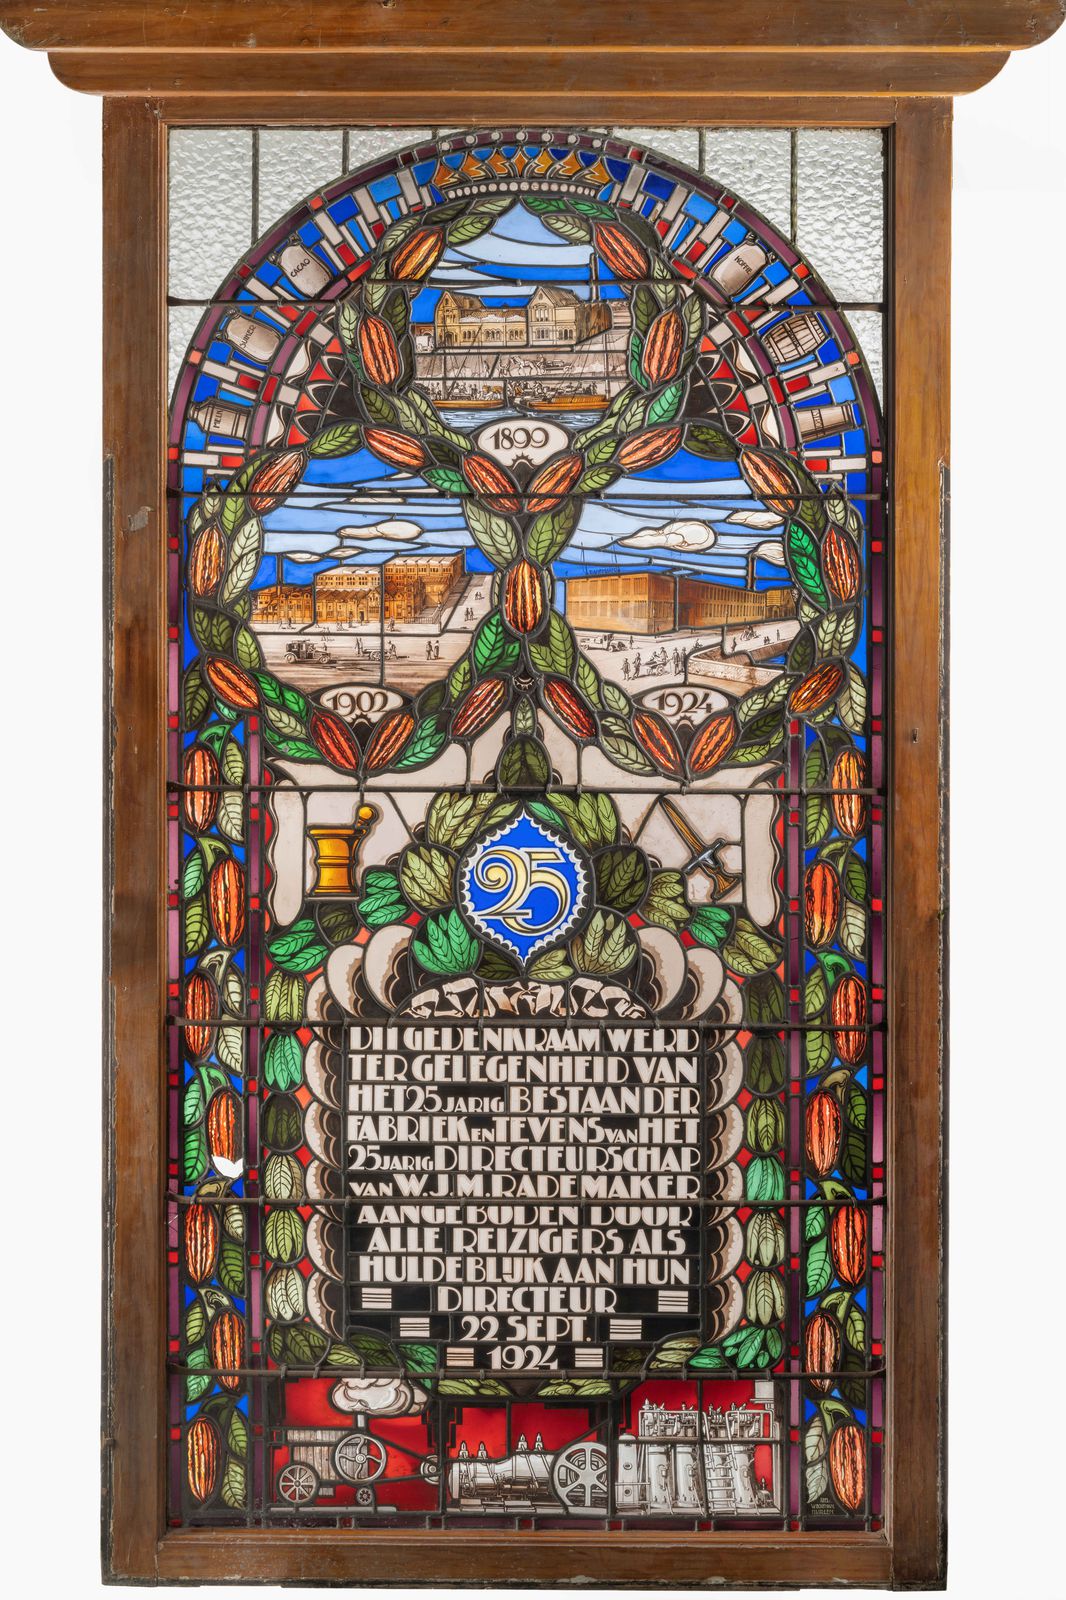 CACAO
KOFFIE
SUIKER
MELK
1899
1902
1924
25
DIT GEDENKRAAM WERD
TER GELEGENHEID VAN
HET 25 JARIG BESTAAN DER
FABRIEK EN TEVENS VAN HET
25 JARIG DIRECTEURSCHAP
VAN W.J.M. RADEMAKER
AANGEBODEN DOOR
ALLE REIZIGERS ALS
HULDEBLIJK AAN HUN
DIRECTEUR
22 SEPT.
1924
HAARLEM